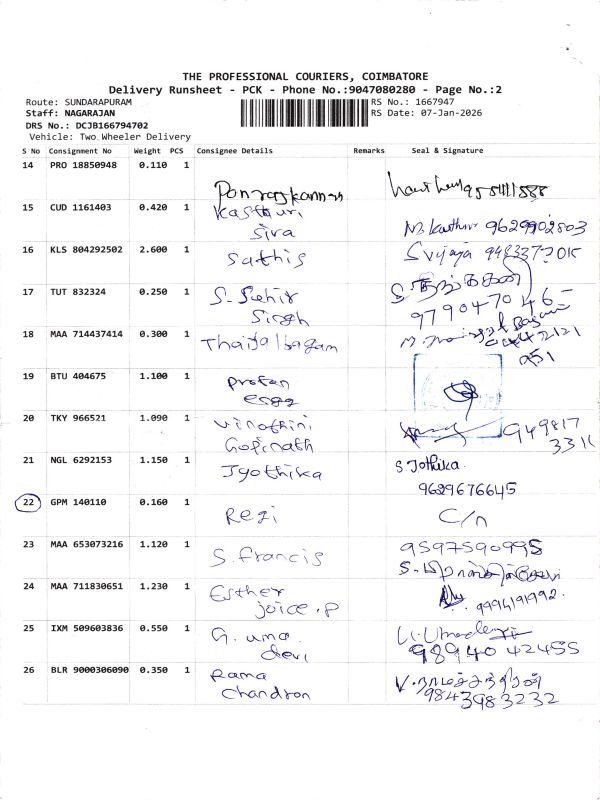 THE PROFESSIONAL COURIERS, COIMBATORE
Delivery Runsheet - PCK - Phone No.:9047080280 - Page No.:2
Route: SUNDARAPURAM
RS No.: 1667947
Staff: NAGARAJAN
RS Date: 07-Jan-2026
DRS No.: DCJB166794702
Vehicle: Two Wheeler Delivery
S No Consignment No Weight PCS Consignee Details Remarks Seal & Signature
14 PRO 18850948 0.110 1
15 CUD 1161403 0.420 1 Kasthuri
Siva M. Kasthuri 9629902803
16 KLS 804292502 2.600 1 Sathis S Vijaya
17 TUT 832324 0.250 1 S-Sehir
Singh 9790470465
18 MAA 714437414 0.300 1
19 BTU 404675 1.100 1 Profen
eggs
20 TKY 966521 1.090 1 Vinothini
Gopinath 949817
3311
21 NGL 6292153 1.150 1 Jyothika S. Jothika.
9629676645
22 GPM 140110 0.160 1 Regi C/n
23 MAA 653073216 1.120 1 S. Francis 9597590995
24 MAA 711830651 1.230 1 Esther
joice.P 9994191992.
25 IXM 509603836 0.550 1 G. uma
devi 98940 42455
26 BLR 9000306090 0.350 1 Rama
Chandron V. ராமச்சந்திரன்
9843983232